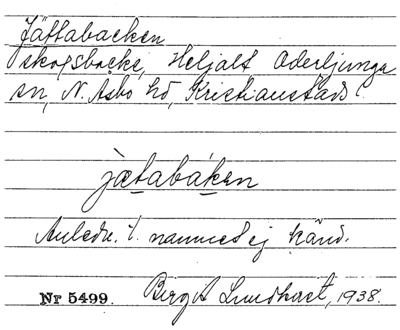 Jättabacken
skogsbacke, Heljalt, Oderljunga
sn, N. Åsbo hd, Kristianstads l.
jætabáken
Anledn. t. namnet ej känd.
Nr 5499. Birgit Lundkvist, 1938.